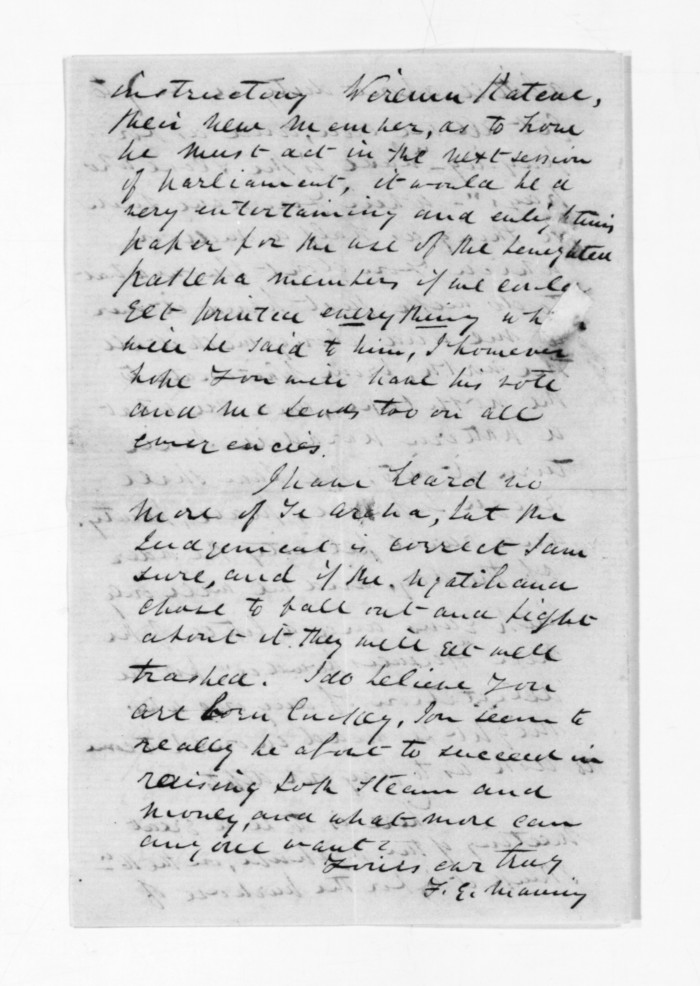 instructing Wiremu Katene,
their new member, as to how
he must act in the next session
of parliament, it would be a
very entertaining and enlightening
paper for the use of the benighted
pakeha members if we could
get printed everything wh
will be said to him, I however
hope you will have his vote
and Mc Leods too on all
emergencies.
I have heard no
more of Te aroha, but the
Judgement is correct I am
sure, and if the Ngatihaua
chose to fall out and fight
about it they will get well
trashed. I do believe you
are born luckey, you seem to
really be about to succeed in
raising both steam and
money, and what more can
anyone want?
Yours ear truy
F. E. Maning